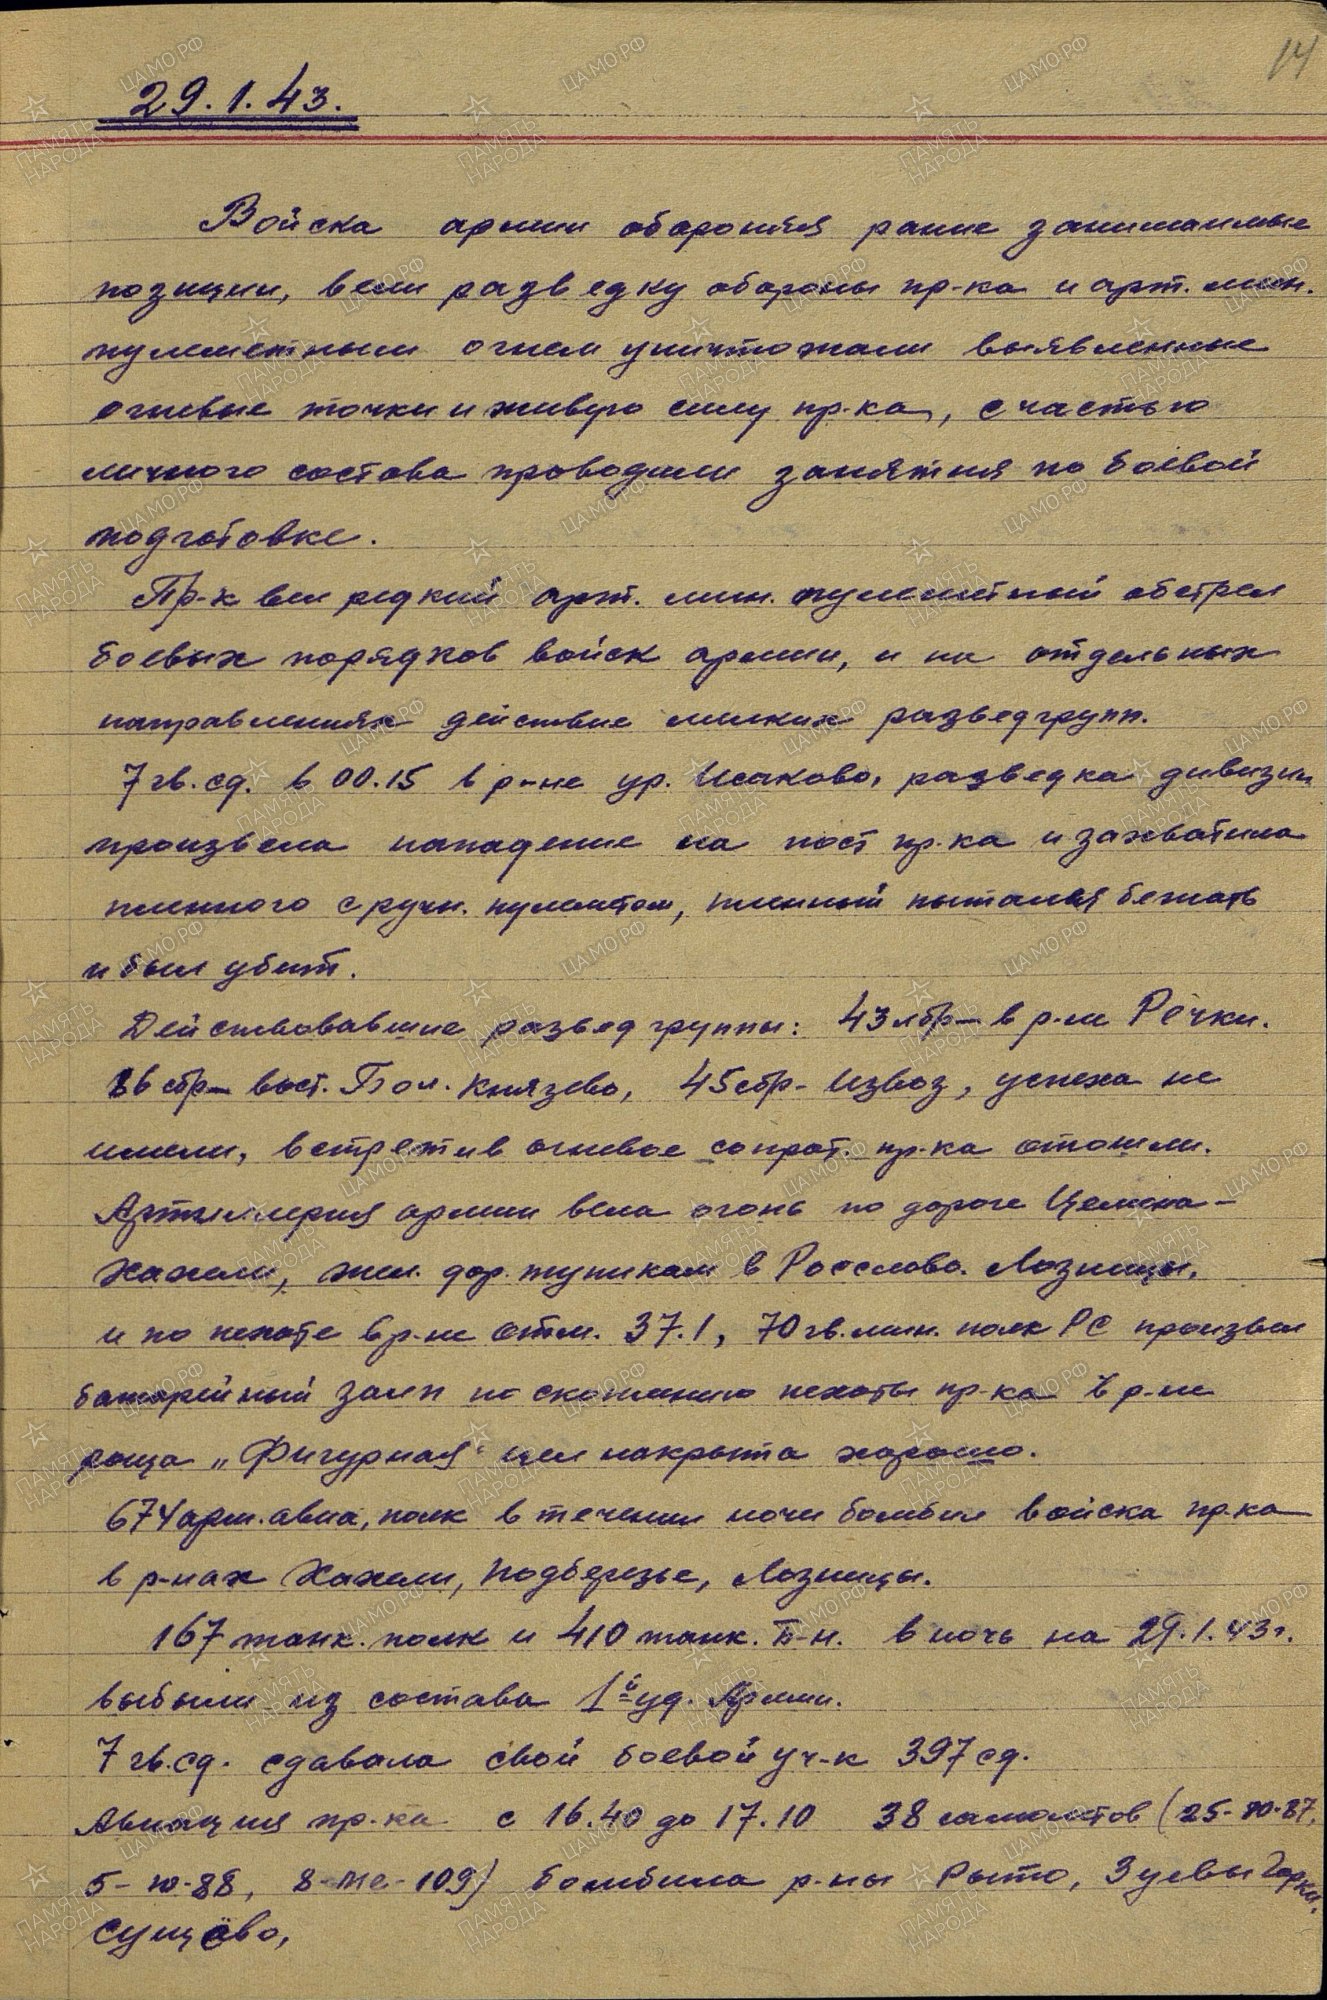 14
29.1.43.
Войска армии обороняя ранее занимаемые
позиции, вели разведку обороны пр-ка и арт. мин.
пулеметным огнем уничтожали выявленные
огневые точки и живую силу пр-ка, с частью
личного состава проводили занятия по боевой
подготовке.
Пр-к вел редкий арт. мин. пулеметный обстрел
боевых порядков войск армии, и на отдельных
направлениях действие мелких разведгрупп.
7 гв. сд. в 00.15 в р-не ур. Исаково, разведка дивизии
произвела нападение на пост пр-ка и захватила
пленного с ручн. пулеметом, пленный пытался бежать
и был убит.
Действовавшие разведгруппы: 43 лбр – в р-не Речки.
86 сбр – вост. Бол. Князево, 45 сбр – Извоз, успеха не
имели, встретив огневое сопрот. пр-ка отошли.
Артиллерия армии вела огонь по дороге Цемена –
Хахели, жел. дор. тупикам в Росслово. Лозницы,
и по пехоте в р-не отм. 37.1, 70 гв. мин. полк РС произвел
батарейный залп по скоплению пехоты пр-ка в р-не
роща „Фигурная" цел накрыта хорошо.
674 арм. авиа, полк в течении ночи бомбил войска пр-ка
в р-нах Хахели, Подберезье, Лозницы.
167 танк. полк и 410 танк. б-н. в ночь на 29.1.43 г.
выбыли из состава 1й уд. Армии.
7 гв. сд. сдавала свой боевой уч-к 397 сд.
Авиация пр-ка с 16.40 до 17.10 38 самолетов (25-ю-87,
5-ю-88, 8-ме-109) бомбила р-ны Рыто, Зуевы Горки,
Сущёво,